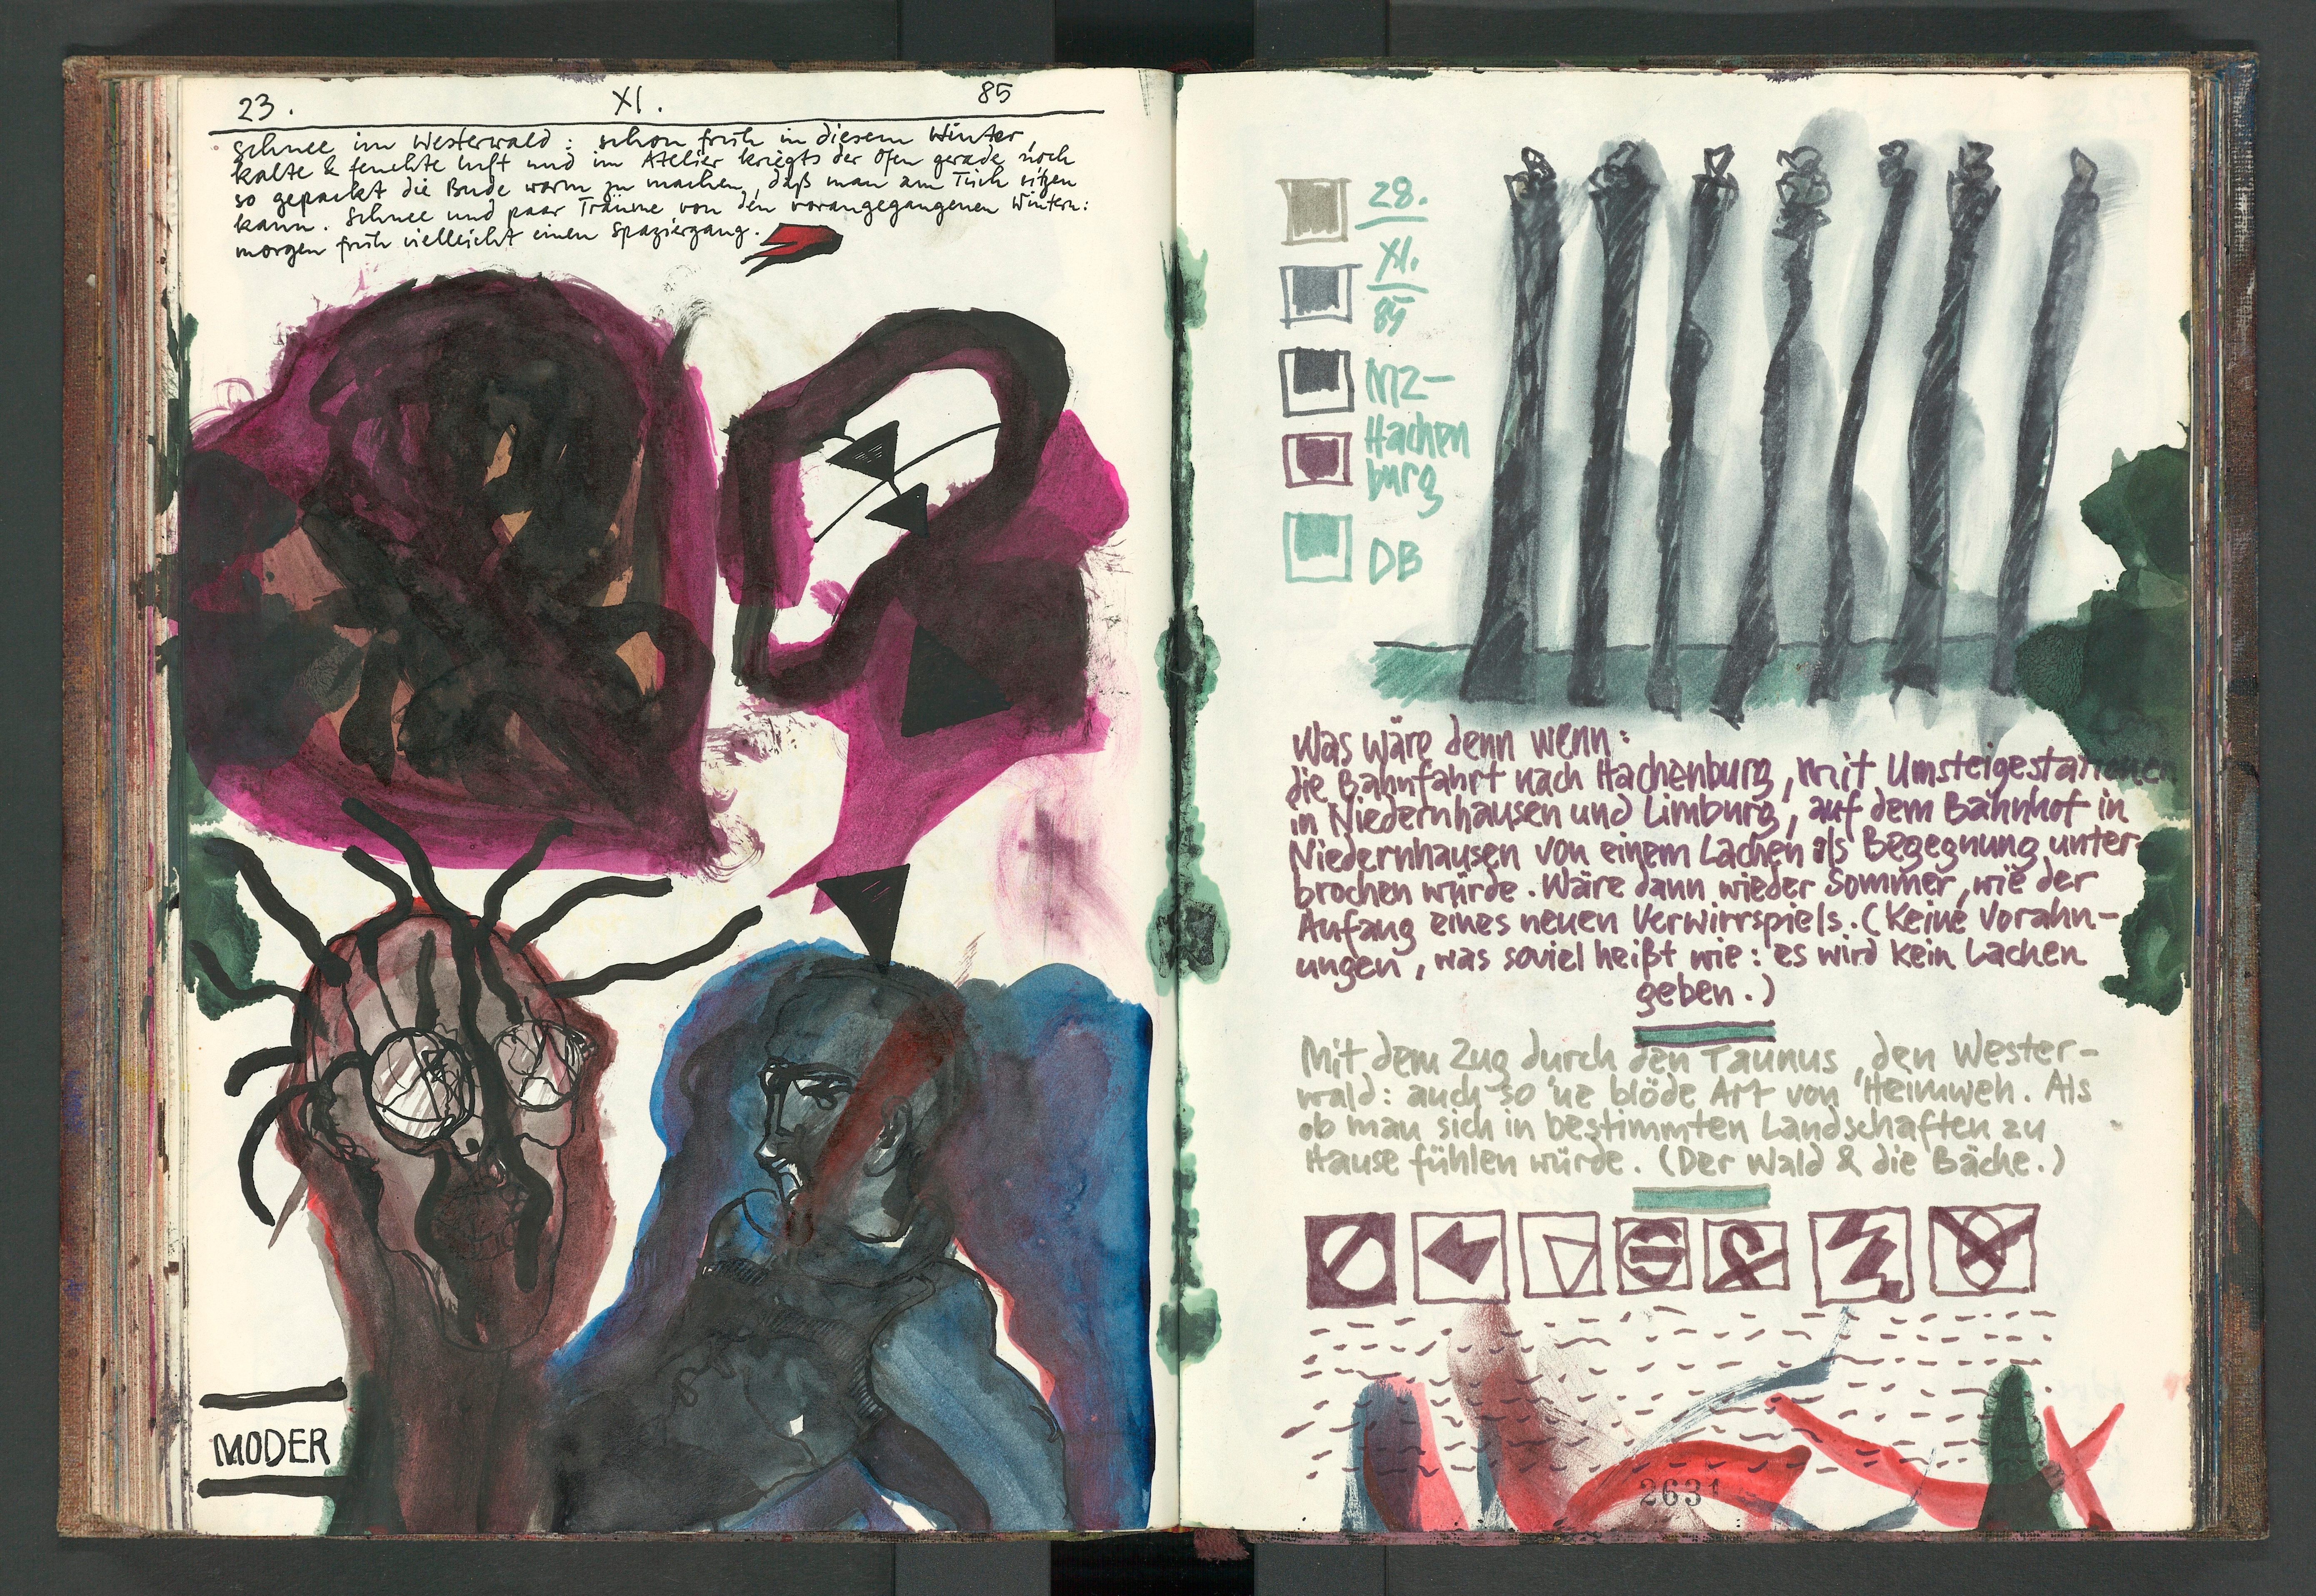 23. XI. 85
Schnee im Westerwald: schon früh in diesem Winter,
kalte & feuchte Luft und im Atelier kriegts der Ofen gerade noch
so gepackt die Bude warm zu machen, daß man am Tisch sitzen
kann. Schnee und paar Träume von den vorangegangenen Wintern:
morgen früh vielleicht einen Spaziergang.
MODER
28.
XI.
85
MZ-
Hachen
burg
DB
Was wäre denn wenn:
die Bahnfahrt nach Hachenburg, mit Umsteigestationen
in Niedernhausen und Limburg, auf dem Bahnhof in
Niedernhausen von einem Lachen als Begegnung unter-
brochen würde. Wäre dann wieder Sommer, wie der
Anfang eines neuen Verwirrspiels. (Keine Vorahn-
ungen, was soviel heißt wie: es wird kein Lachen
geben.)
Mit dem Zug durch den Taunus, den Wester-
wald: auch so 'ne blöde Art von Heimweh. Als
ob man sich in bestimmten Landschaften zu
Hause fühlen würde. (Der Wald & die Bäche.)
2631